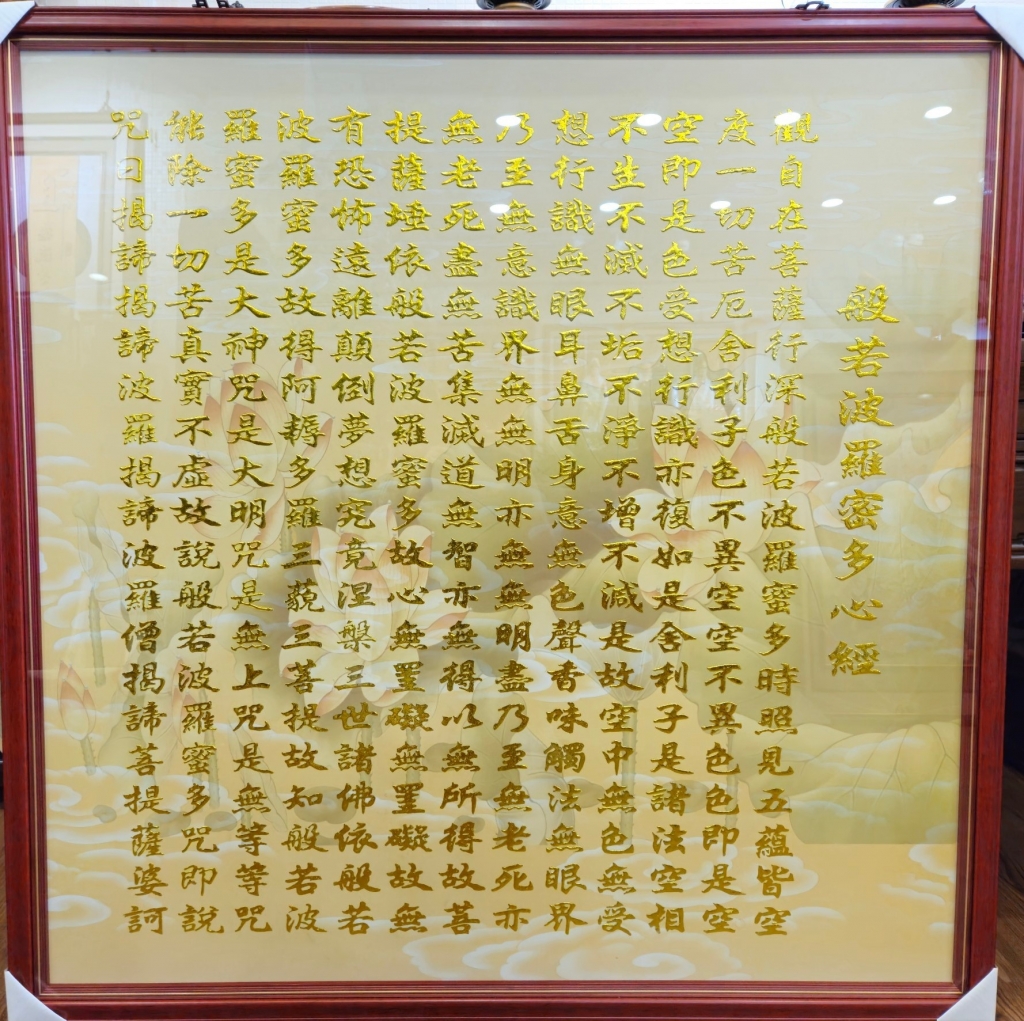 般若波羅密多心經
觀自在菩薩行深般若波羅蜜多時照見五蘊皆空
度一切苦厄舍利子色不異空空不異色色即是空
空即是色受想行識亦復如是舍利子是諸法空相
不生不滅不垢不淨不增不減是故空中無色無受
想行識無眼耳鼻舌身意無色聲香味觸法無眼界
乃至無意識界無無明亦無無明盡乃至無老死亦
無老死盡無苦集滅道無智亦無得以無所得故菩
提薩埵依般若波羅蜜多故心無罣礙無罣礙故無
有恐怖遠離顛倒夢想究竟涅槃三世諸佛依般若
波羅蜜多故得阿耨多羅三藐三菩提故知般若波
羅蜜多是大神咒是大明咒是無上咒是無等等咒
能除一切苦真實不虛故說般若波羅蜜多咒即說
咒曰揭諦揭諦波羅揭諦波羅僧揭諦菩提薩婆訶